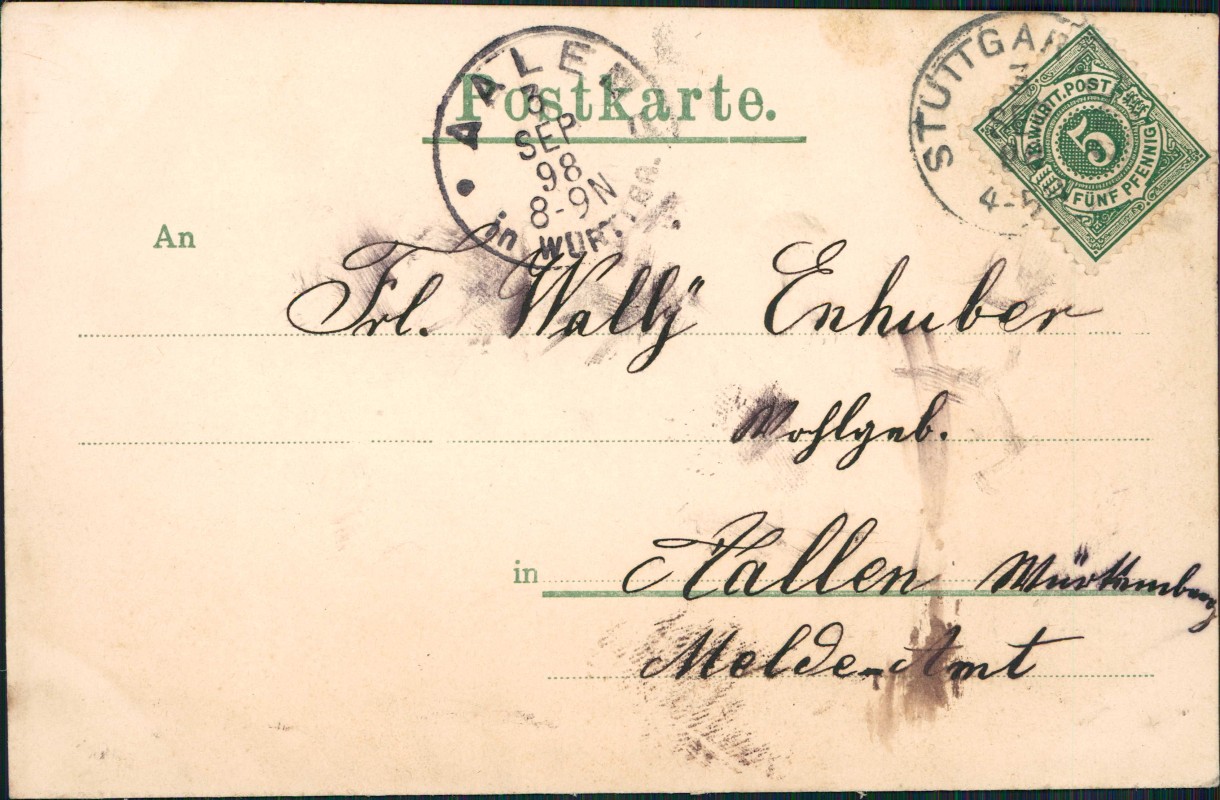 Postkarte.
AALEN
3
SEP
98
8-9N
in WÜRTT
STUTTGAR
4-5N
K.WÜRTT.POST
5
FÜNF PFENNIG
An
Frl. Wally Enhuber
Wohlgeb.
in Aallen Württemberg
Melde-Amt